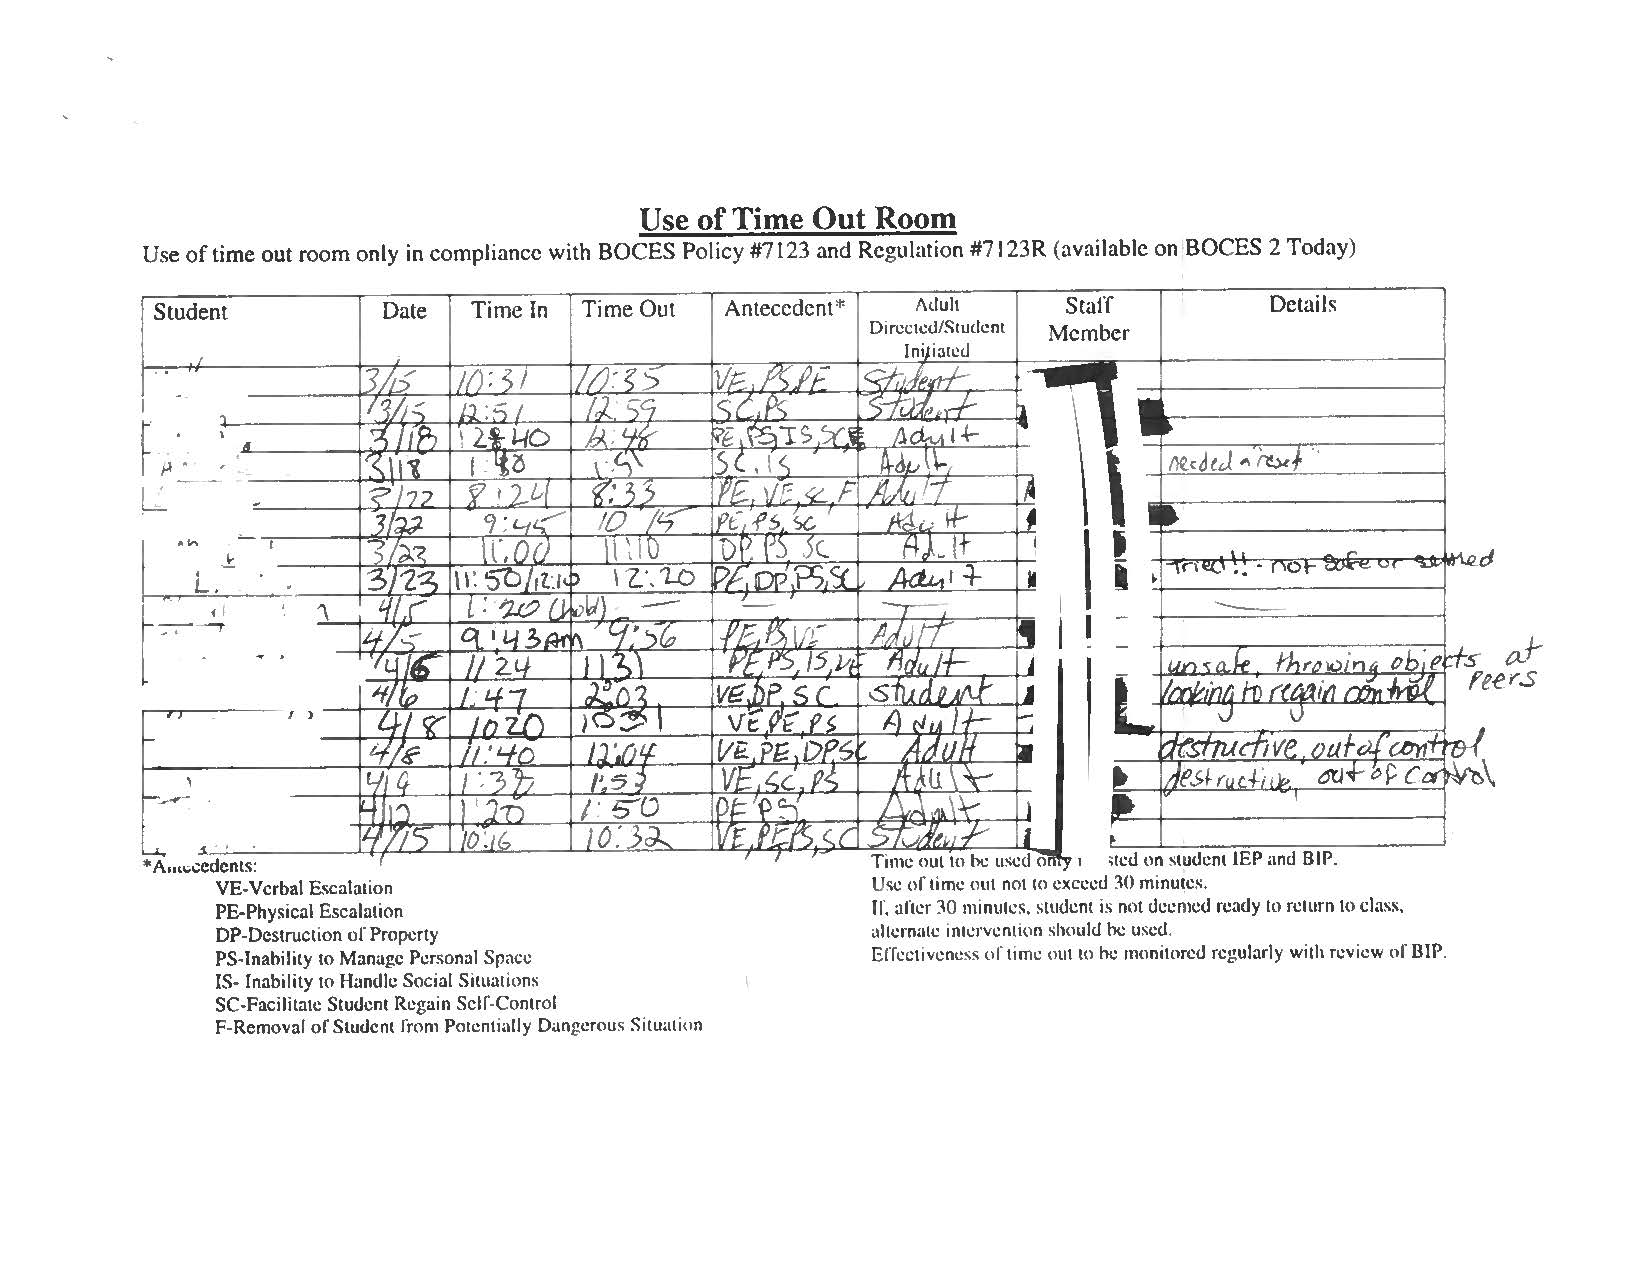 Use of Time Out Room
Use of time out room only in compliance with BOCES Policy #7123 and Regulation #7123R (available on BOCES 2 Today)
Student Date Time In Time Out Antecedent* Adult Directed/Student Initiated Staff Member Details
3/15 10:31 10:35 VE, PS, PE Student
3/15 12:51 12:59 SC, PS Student
3/18 12:40 12:48 PE, PS IS, SC Adult
3/18 SC, IS Adult needed a "reset"
3/22 8:24 8:33 PE, VE, SC, F Adult
3/22 9:45 10 15 PE, PS, SC Adult
3/23 11:00 11:10 DP, PS SC Adult
3/23 11:50/12:10 12:20 PE, DP, PS, SC Adult Tried!! - not safe or
4/5 1:20 (hold) — — —
4/5 9:43 Am 9:56 PE, PS VE Adult
4/6 11 24 1131 PE, PS, IS, VE Adult unsafe, throwing objects at peers
4/6 1:47 2:03 VE, DP, SC student looking to regain control
4/8 1020 1031 VE, PE, PS Adult
4/8 11:40 12:04 VE, PE, DP SC Adult destructive, out of control
4/9 1:32 1:53 VE, SC, PS Adult destructive, out of control
4/12 1:20 1:50 PE PS Adult
4/15 10:16 10:32 VE, PE PS, SC Student
*Antecedents:
VE-Verbal Escalation
PE-Physical Escalation
DP-Destruction of Property
PS-Inability to Manage Personal Space
IS- Inability to Handle Social Situations
SC-Facilitate Student Regain Self-Control
F-Removal of Student from Potentially Dangerous Situation
Time out to be used only sted on student IEP and BIP.
Use of time out not to exceed 30 minutes.
If, after 30 minutes, student is not deemed ready to return to class,
alternate intervention should be used.
Effectiveness of time out to be monitored regularly with review of BIP.